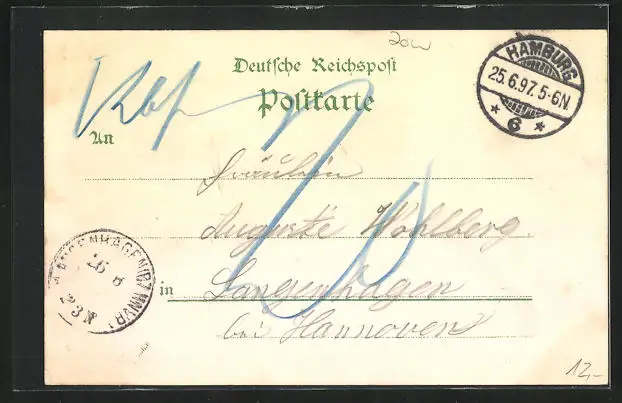 20w
Deutsche Reichspost
Postkarte
HAMBURG
25.6.97.5-6N.
* 6 *
An
Fräulein
Auguste Wohlberg
in Langenhagen
bei Hannover
LANGENHAGEN (B. HANNVR)
26 6
12,-